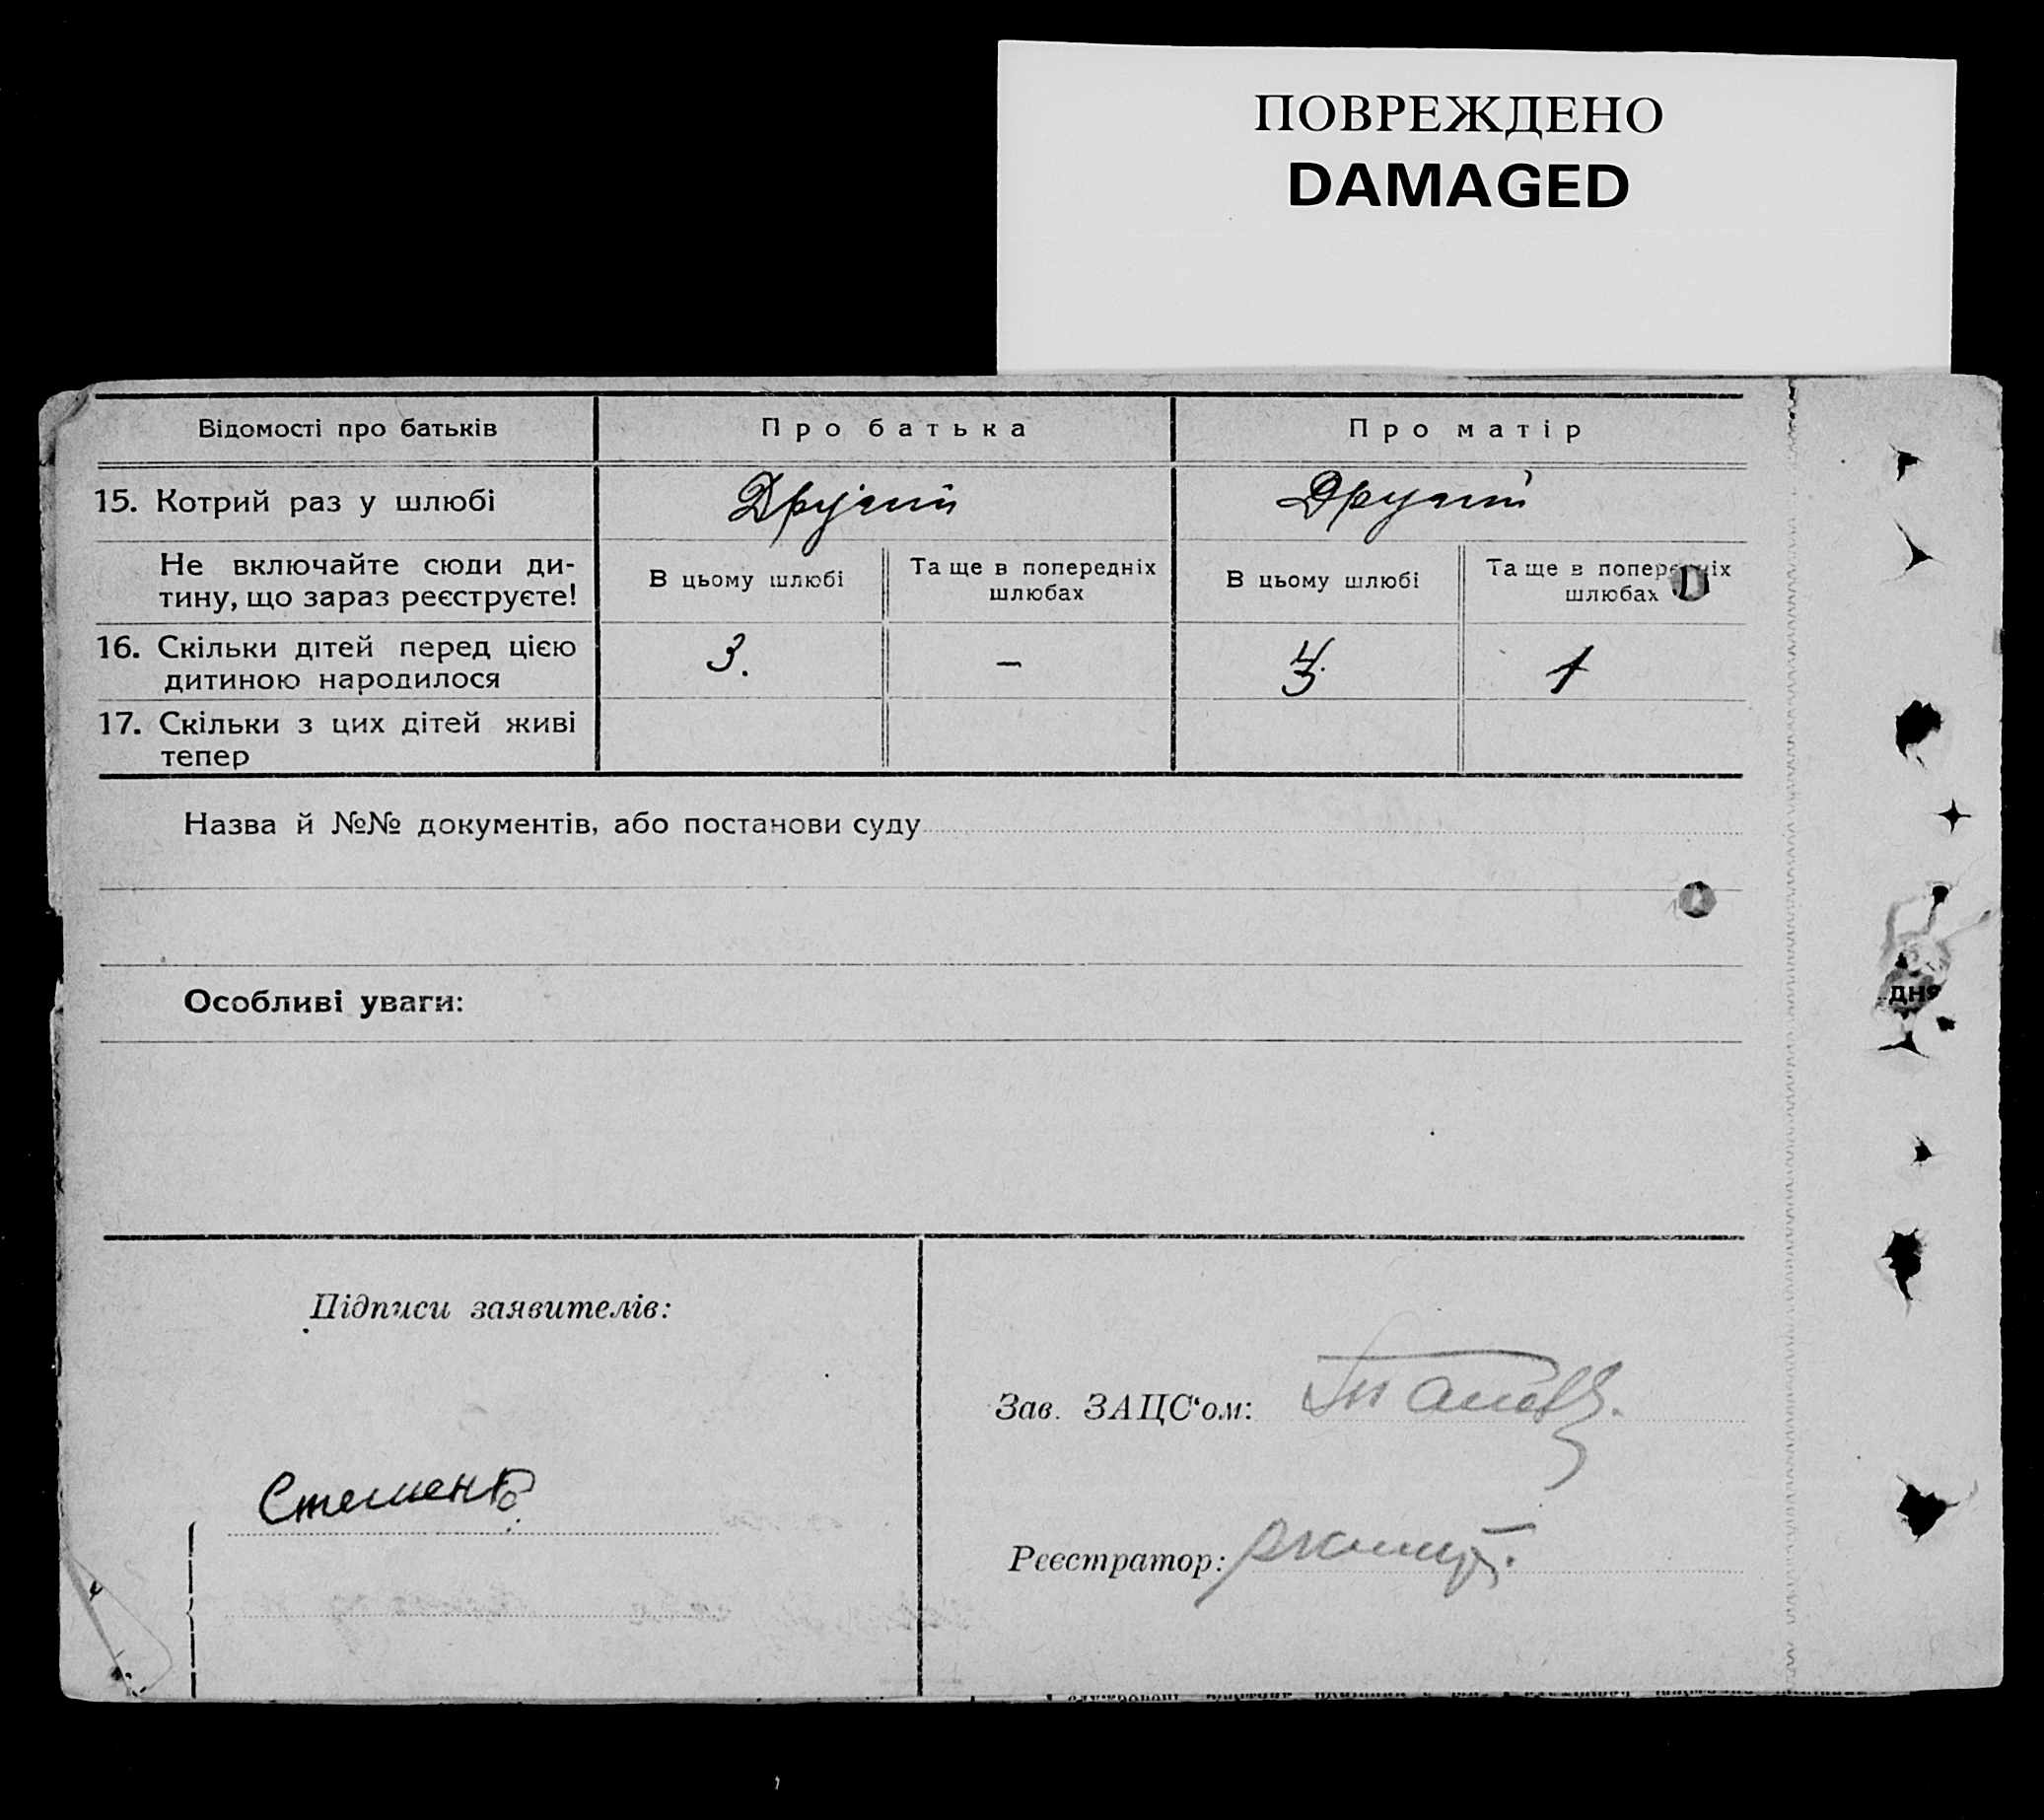 ПОВРЕЖДЕНО
DAMAGED
Відомості про батьків
Про батька
Про матір
15. Котрий раз у шлюбі
Другий
Другий
Не включайте сюди ди-
тину, що зараз реєструєте!
В цьому шлюбі
Та ще в попередніх
шлюбах
В цьому шлюбі
Та ще в попередніх
шлюбах
16. Скільки дітей перед цією
дитиною народилося
3.
–
3.
1
17. Скільки з цих дітей живі
тепер
Назва й №№ документів, або постанови суду
дня
Особливі уваги:
Підписи заявителів:
Зав. ЗАЦС‘ом:
Реєстратор: